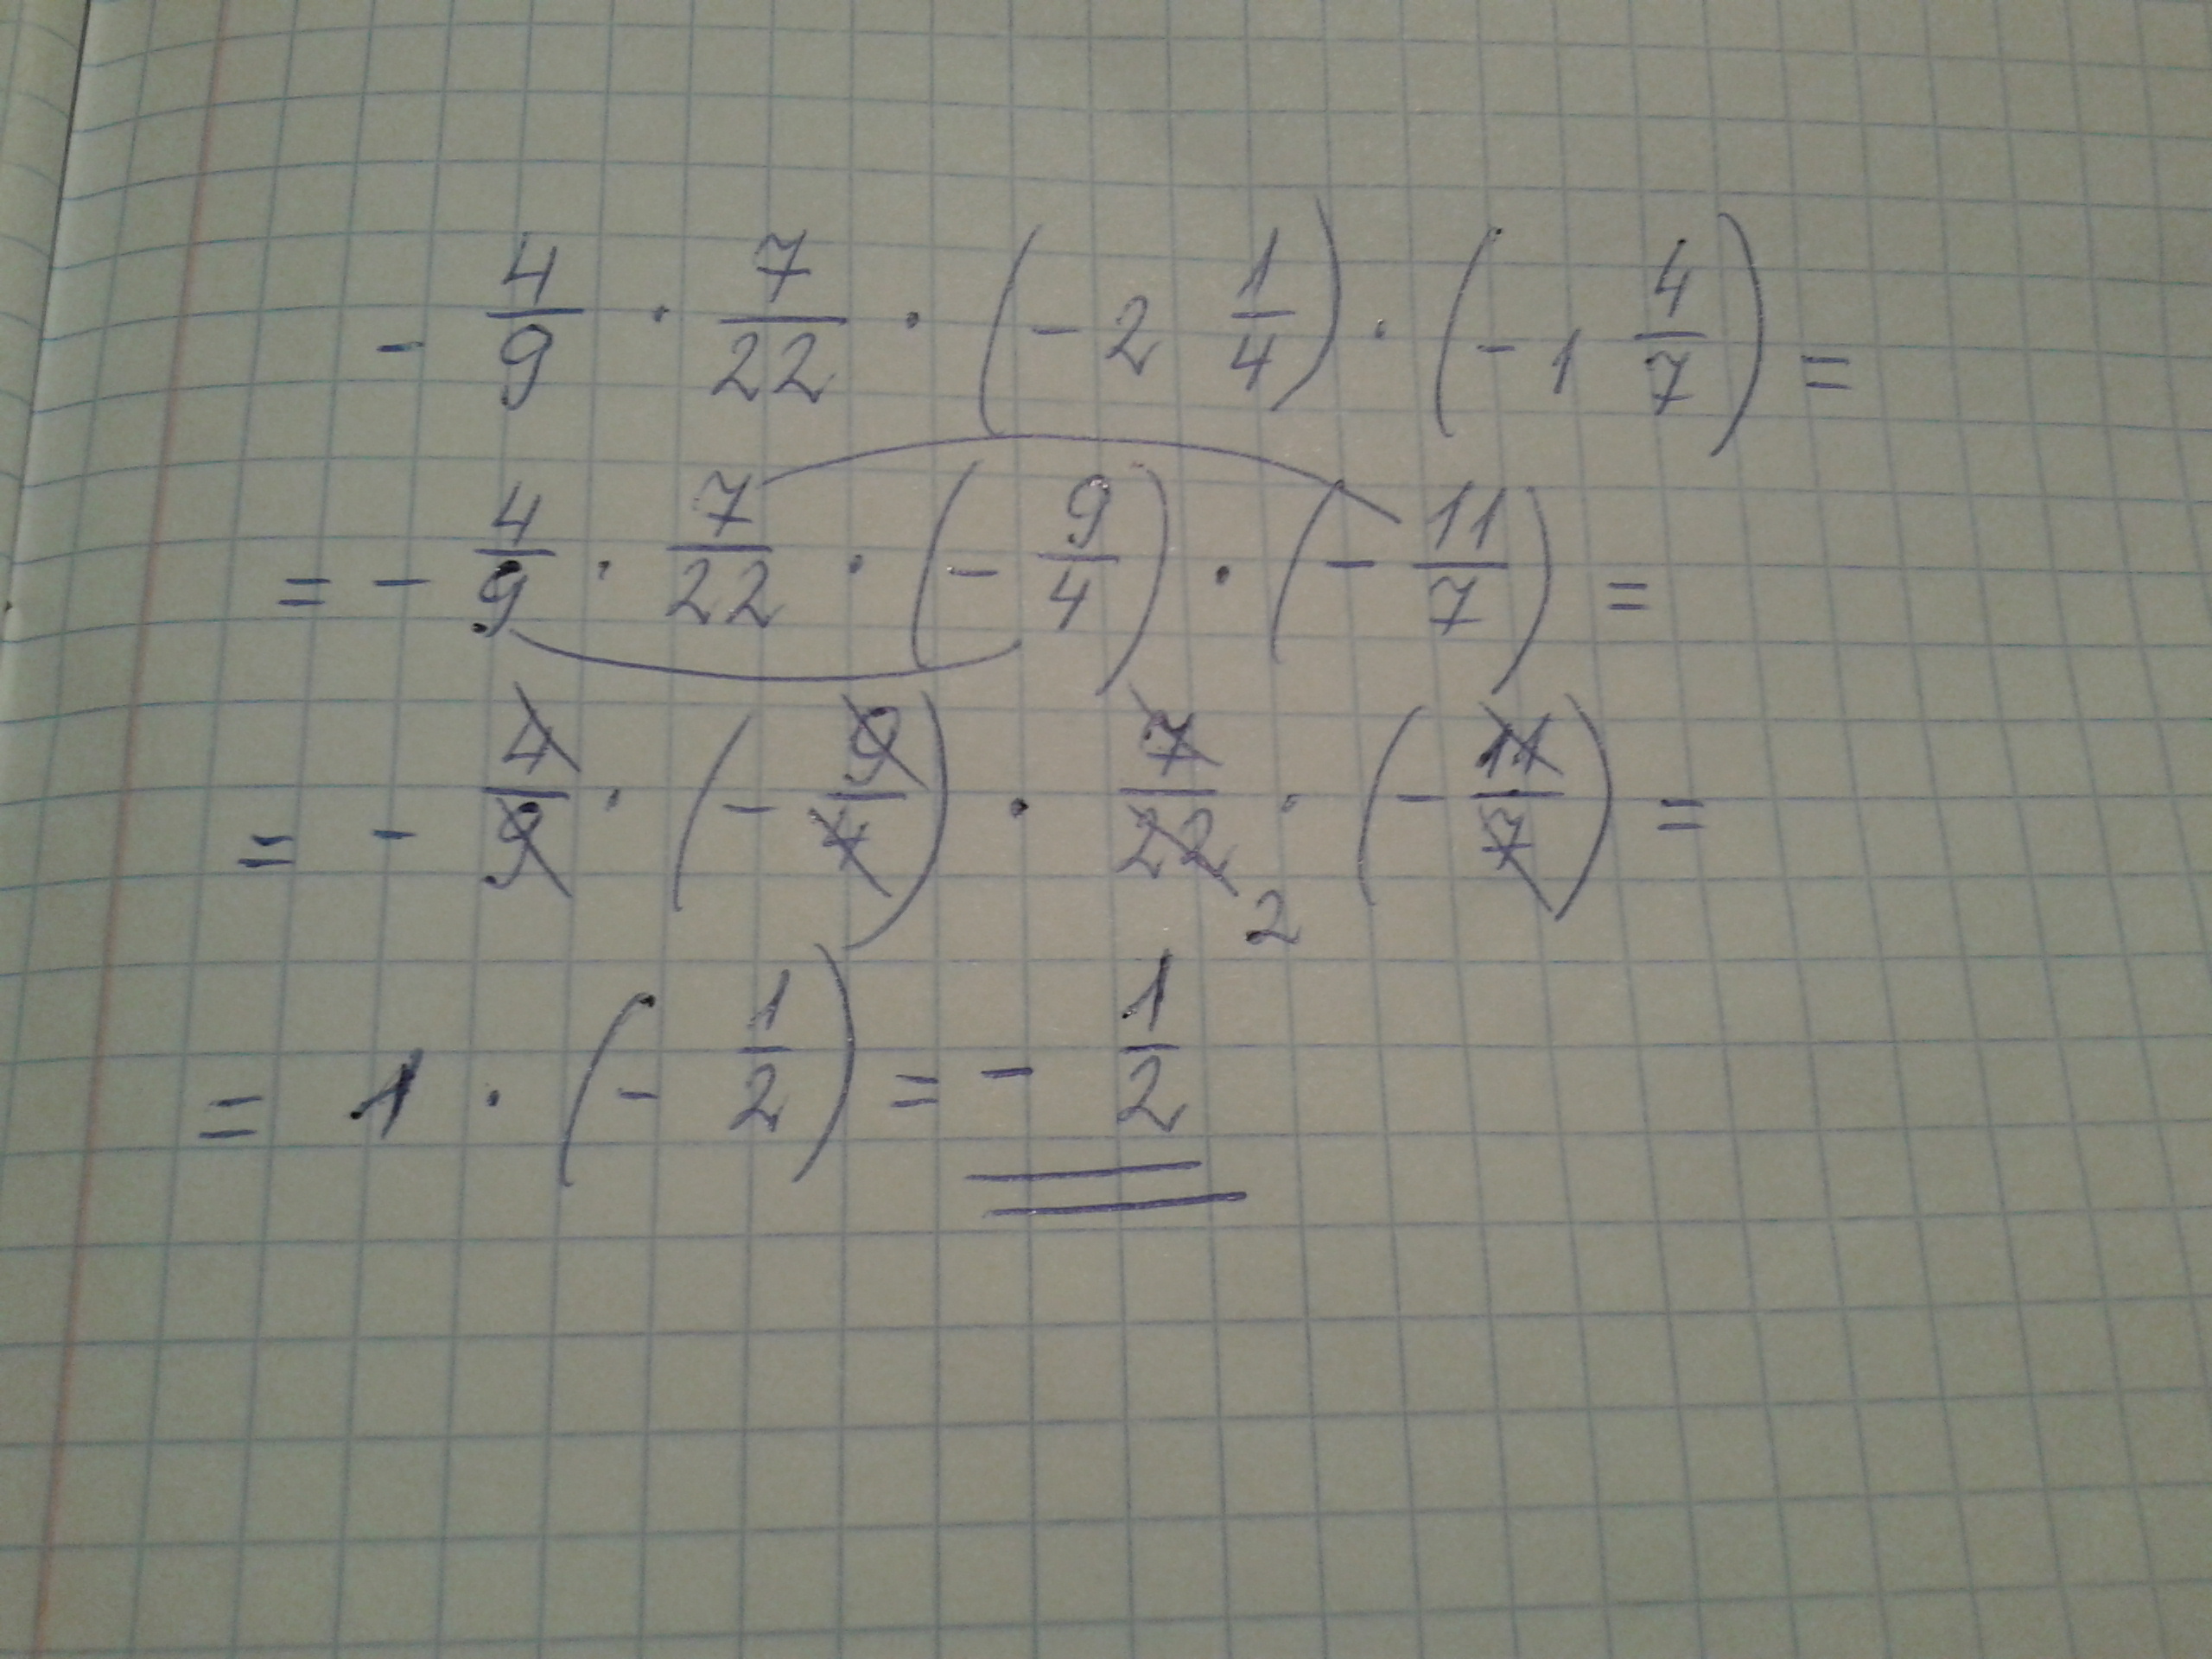 - 4/9 · 7/22 · (- 2 1/4) · (- 1 4/7) =
= - 4/9 · 7/22 · (- 9/4) · (- 11/7) =
= - 4/9 · (- 9/4) · 7/22 2 · (- 11/7) =
= 1 · (- 1/2) = - 1/2